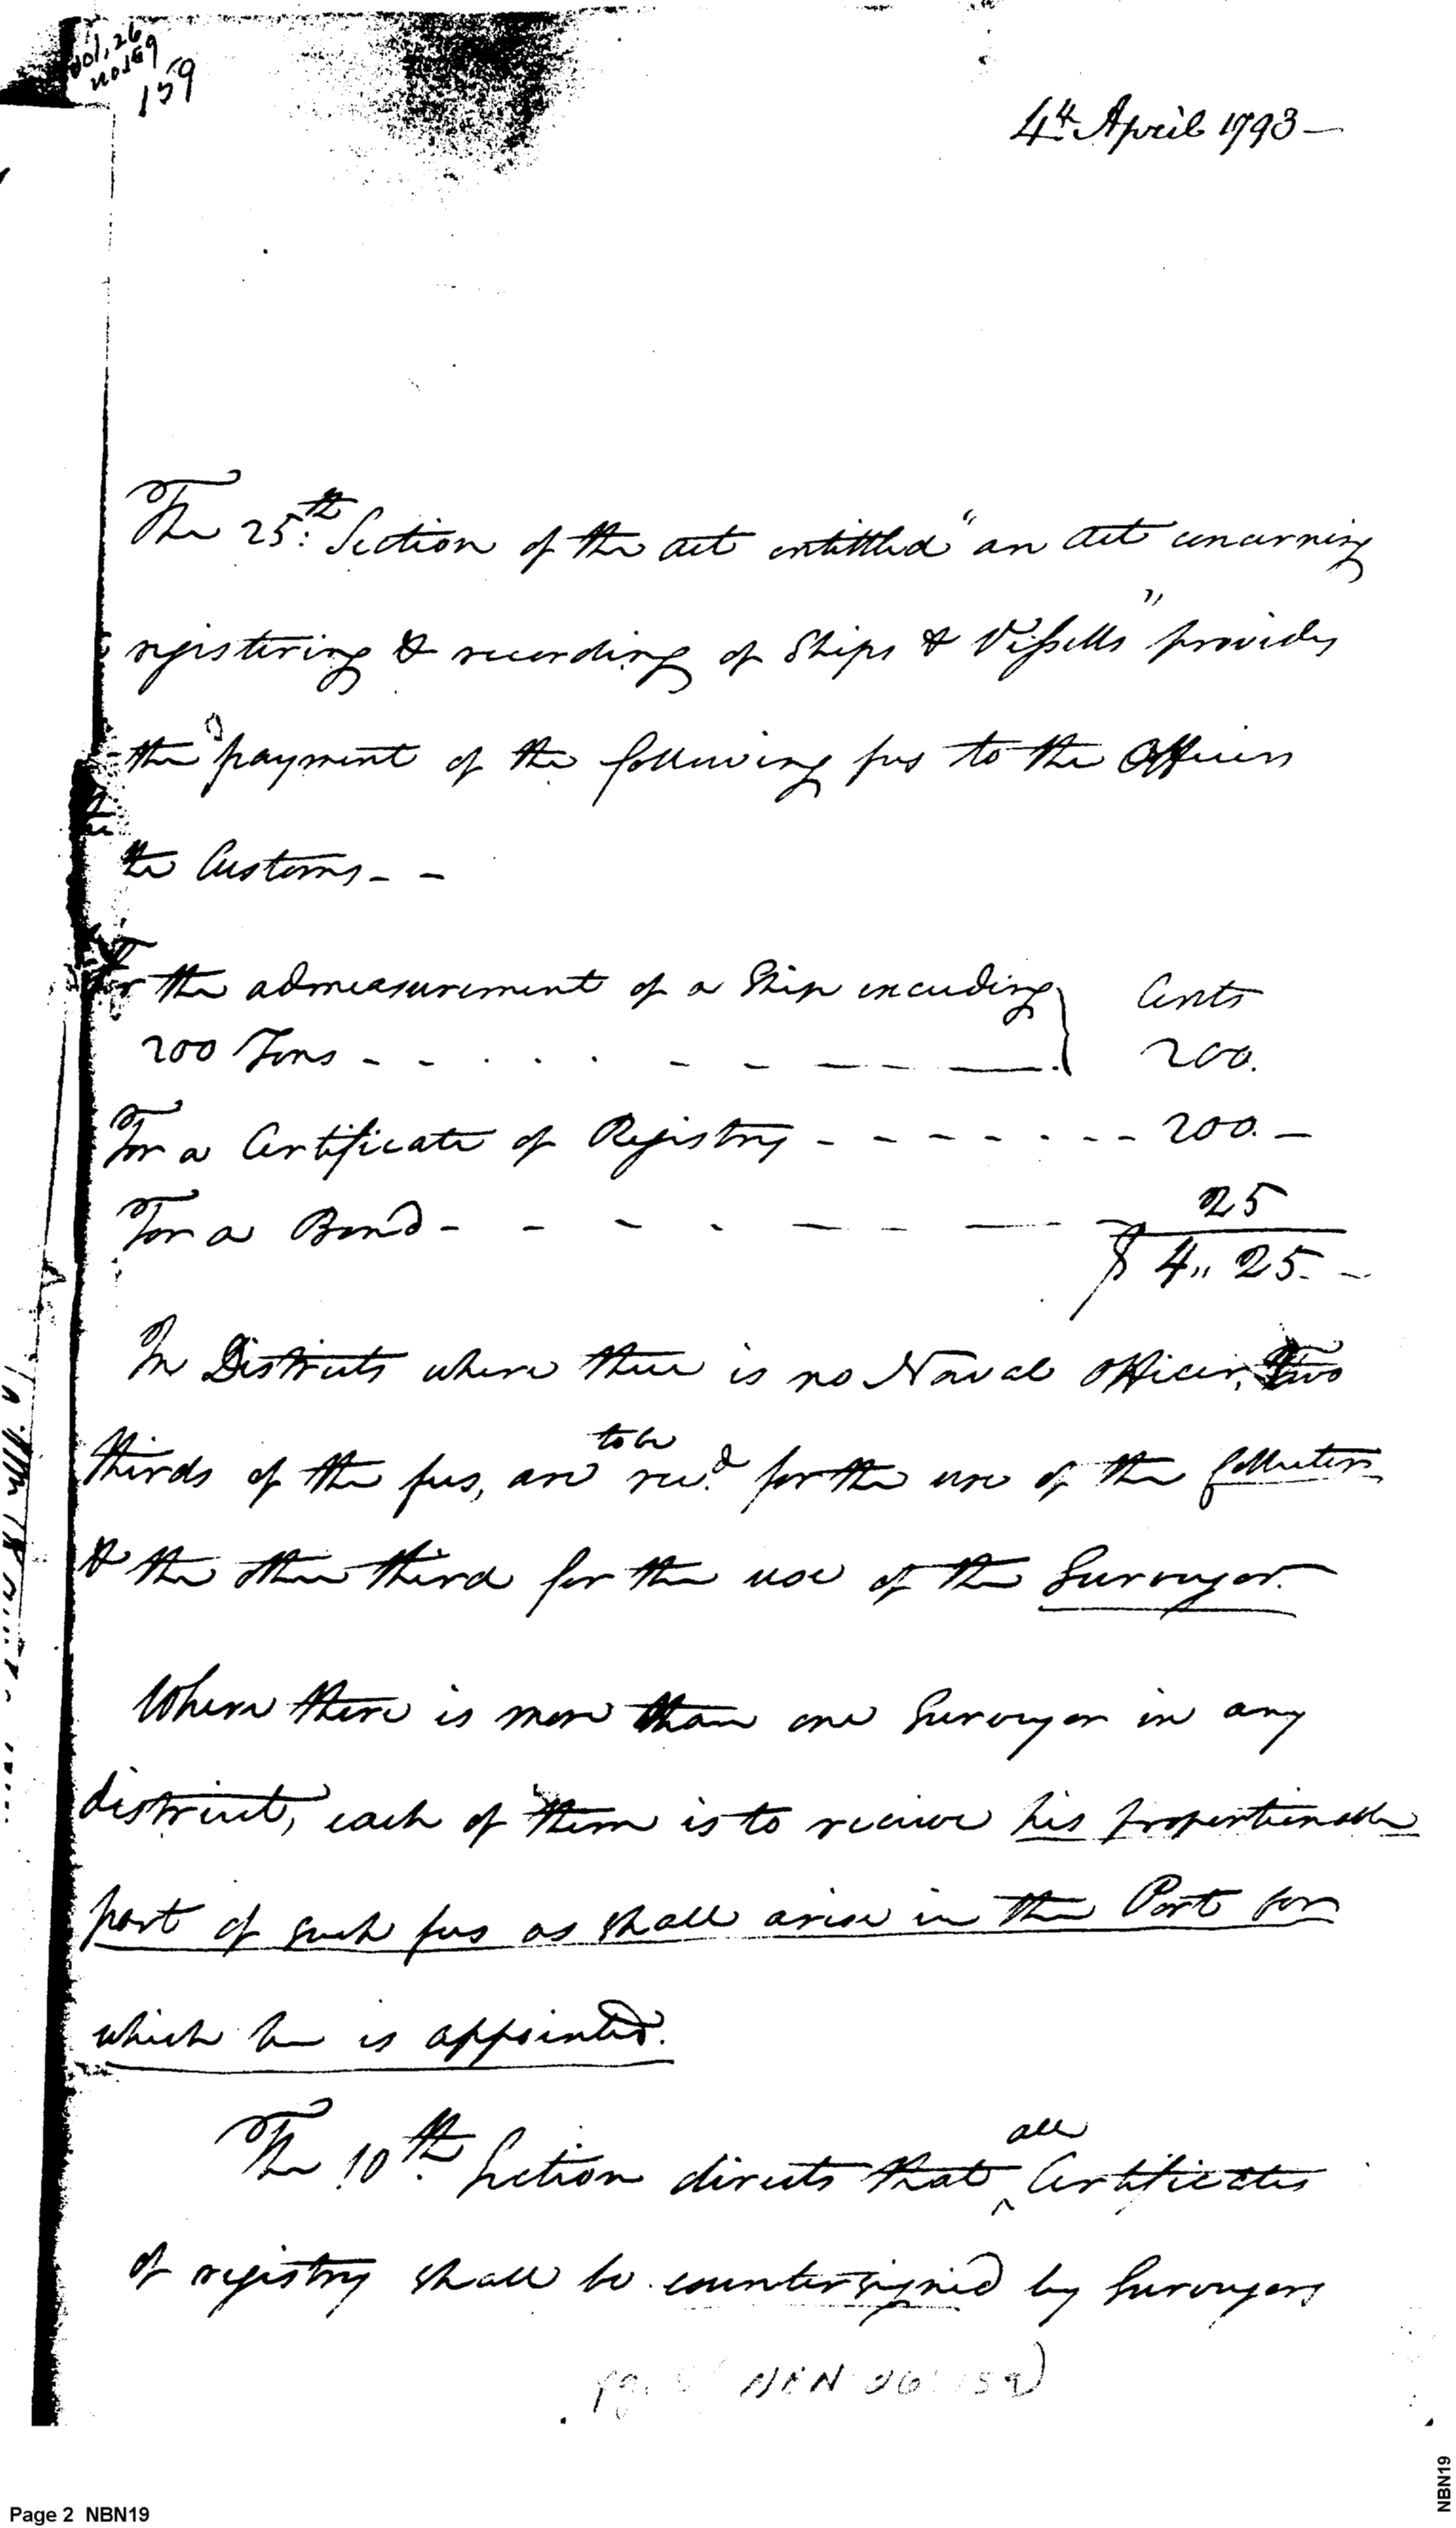 vol. 26
no 159
159
4th April 1793 —
The 25th Section of the act entittled "an act concerning
registering & recording of Ships & Vessells" provides
the payment of the following fees to the Officers
the Customs - -
For the admeasurement of a Ship exceeding } Cents
200 Tons - - . . . - - — — — . 200.
For a Certificate of Registry - - - - - - - - 200. —
For a Bond - - - - — - — — 25
$ 4,, 25. -
In Districts where there is no Naval Officer, Two
to be
thirds of the fees, are recd. for the use of the Collector
& the other third for the use of the Surveyor.
Where there is more than one Surveyor in any
district, each of them is to receive his proportionable
part of such fees as shall arise in the Port for
which he is appointed.
all
The 10th Section directs that ^ Certificates
of registry shall be countersigned by Surveyors
Page 2 NBN19
NBN19